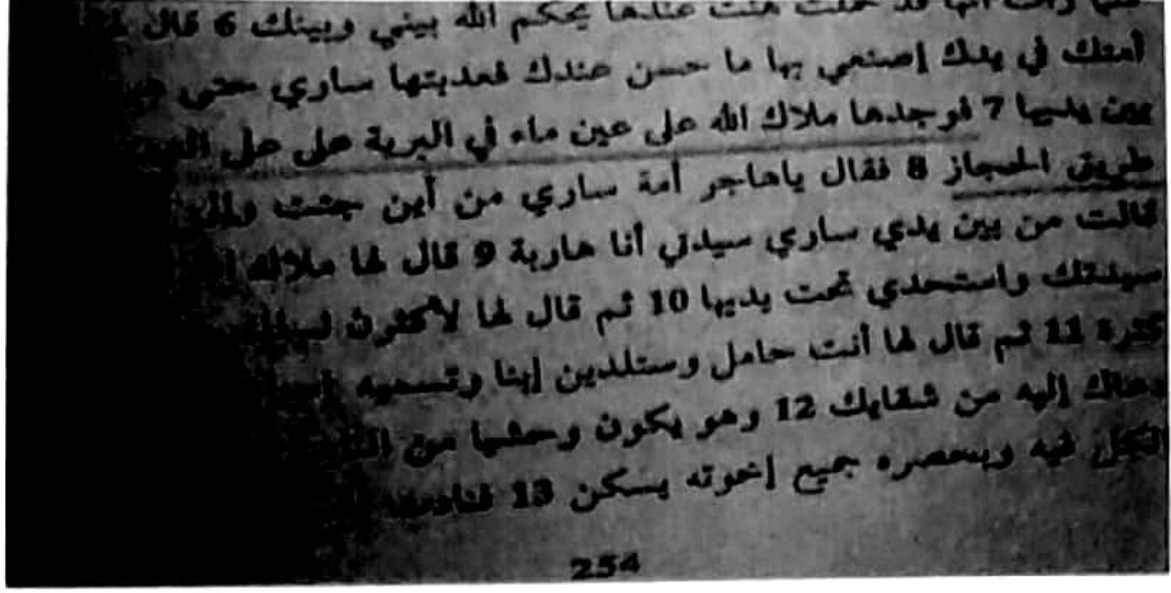 أنها قد حملت هنت عندها يحكم الله بيني وبينك 6 قال
أمتك في يدك إصنعي بها ما حسن عندك فعذبتها ساري حتى
بين يديها 7 فوجدها ملاك الله على عين ماء في البرية على على
طريق الحجاز 8 فقال ياهاجر أمة ساري من أين جئت
قالت من بين يدي ساري سيدتي أنا هاربة 9 قال لها ملاك
سيدتك واستحدي تحت يديها 10 ثم قال لها لأكثرن
كثرة 11 ثم قال لها أنت حامل وستلدين إبنا وتسميه
إليه من شقايك 12 وهو يكون وحشيا من
الكل فيه وبحصره جميع إخوته يسكن 13
254